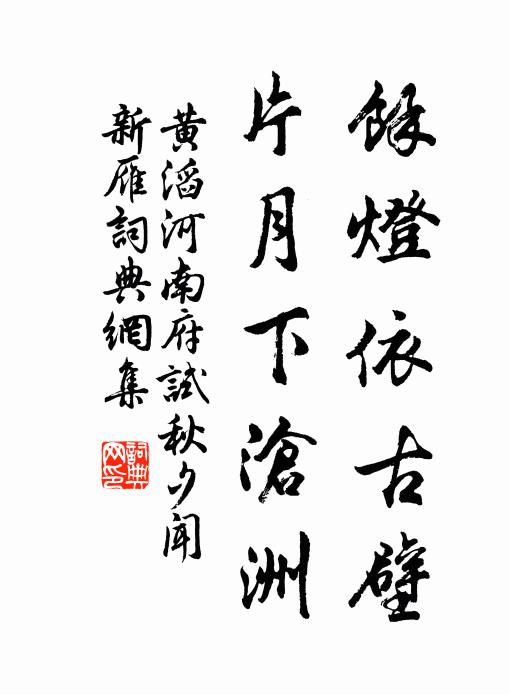 餘燈依古壁
片月下滄洲
黃滔河南府試秋夕聞
新雁詞典網集
詞典網印